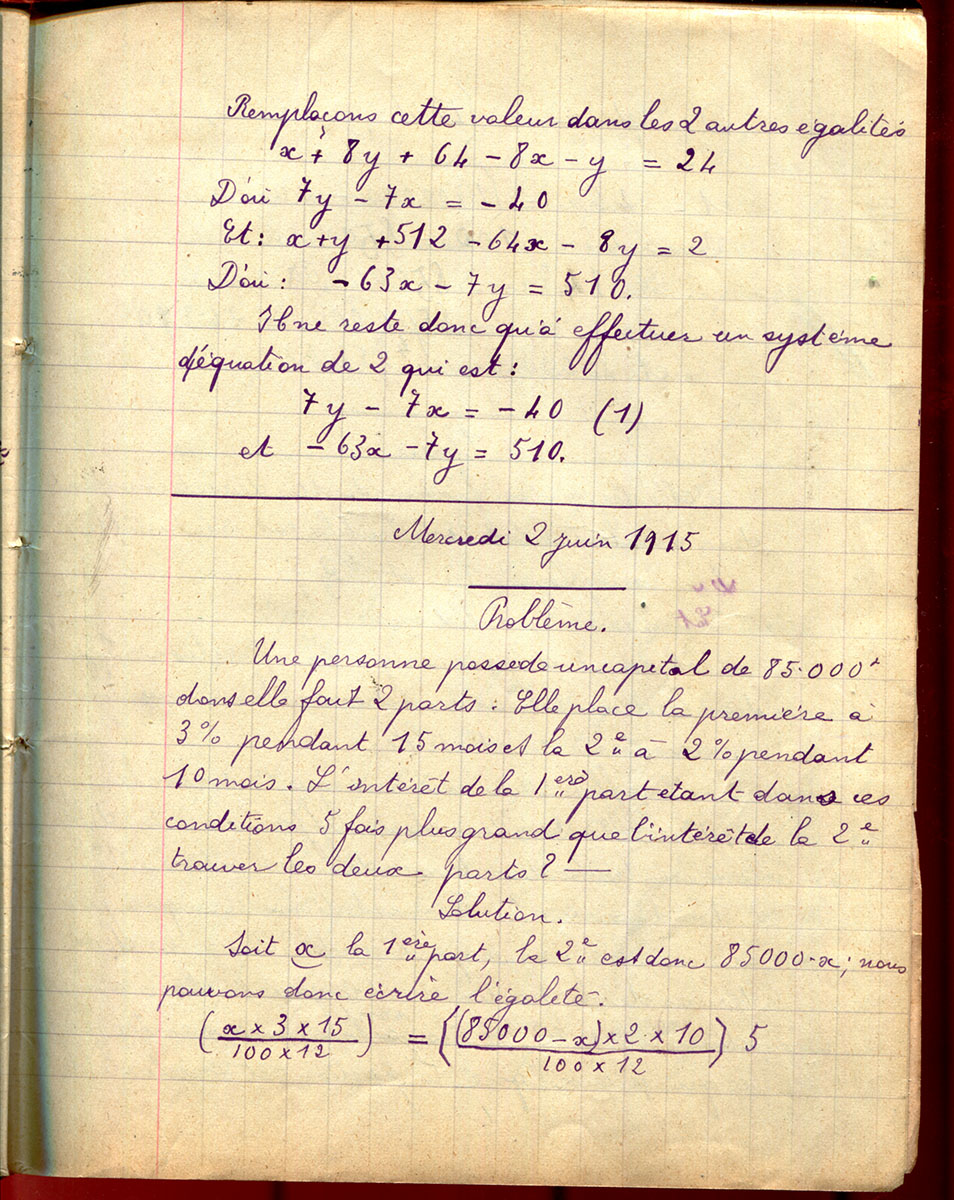 Remplaçons cette valeur dans les 2 autres égalités
x + 8y + 64 - 8x - y = 24
D'où 7y - 7x = - 40
Et: x + y + 512 - 64x - 8y = 2
D'où: - 63x - 7y = 510.
Il ne reste donc qu'à effectuer un systéme
d'équation de 2 qui est:
7y - 7x = - 40 (1)
et - 63x - 7y = 510.
Mercredi 2 juin 1915
Problème.
Une personne possede un capital de 85.000f
dont elle fait 2 parts: Elle place la premiére à
3% pendant 15 mois et la 2e à 2% pendant
10 mois. L'intérêt de la 1ere part etant dans ces
conditions 5 fois plus grand que l'intérêt de la 2e
trouver les deux parts? —
Solution.
Soit x la 1ère part, la 2e est donc 85000-x; nous
pouvons donc écrire l'égaleté.
(x × 3 × 15 / 100 × 12) = ((85000 - x) × 2 × 10 / 100 × 12) 5